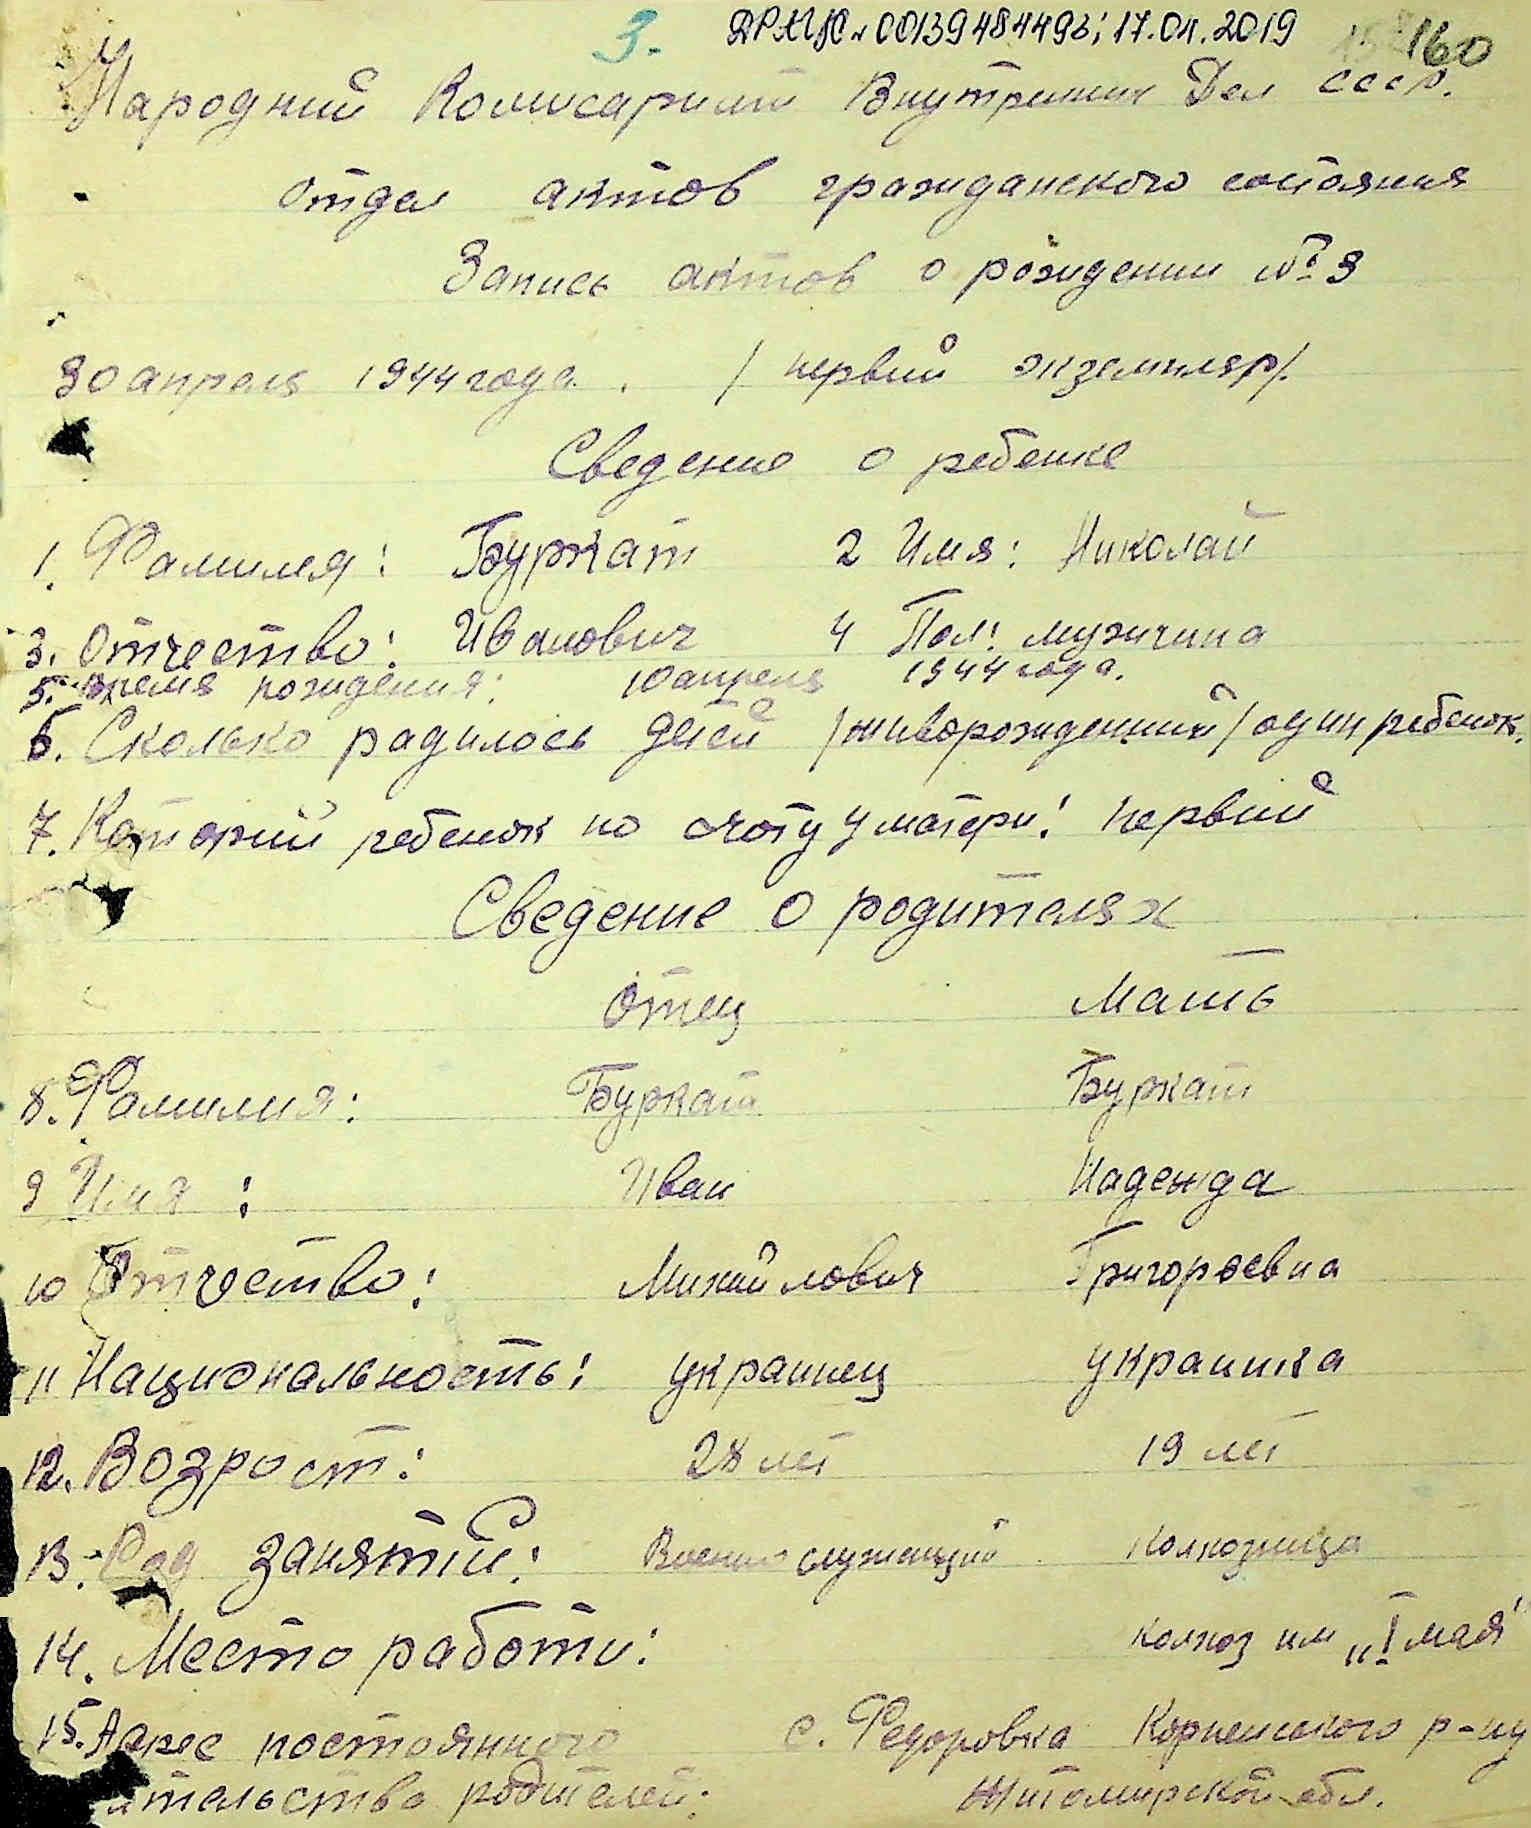 3. ДРАЦС 00139484493; 17.01.2019 160
Народний Комисариат Внутренних Дел СССР.
Отдел актов гражданского состояния
Запись актов о рождении №3
30 апреля 1944 года. / первий экземпляр/.
Сведение о ребенке
1. Фамилия: Буркат 2 Имя: Николай
3. Отчество: Иванович 4 Пол: мужчина
5. Время рождения: 10 апреля 1944 года.
6. Сколько радилось детей /живорожденний/ один ребенок.
7. Которий ребенок по счоту у матери: первий
Сведение о родителях
Отец Мать
8. Фамилия: Буркат Буркат
9 Имя: Иван Надежда
10 Отчество: Михайлович Григорьевна
11 Национальность: украинец украинка
12. Возрост: 28 лет 19 лет
13. Род занятий: Военнослужащий Колхозница
14. Место работи: колхоз им „I мая"
15. Адрес постоянного с. Федоровка Корнинского р-ну
ительства родителей: Житомирской обл.